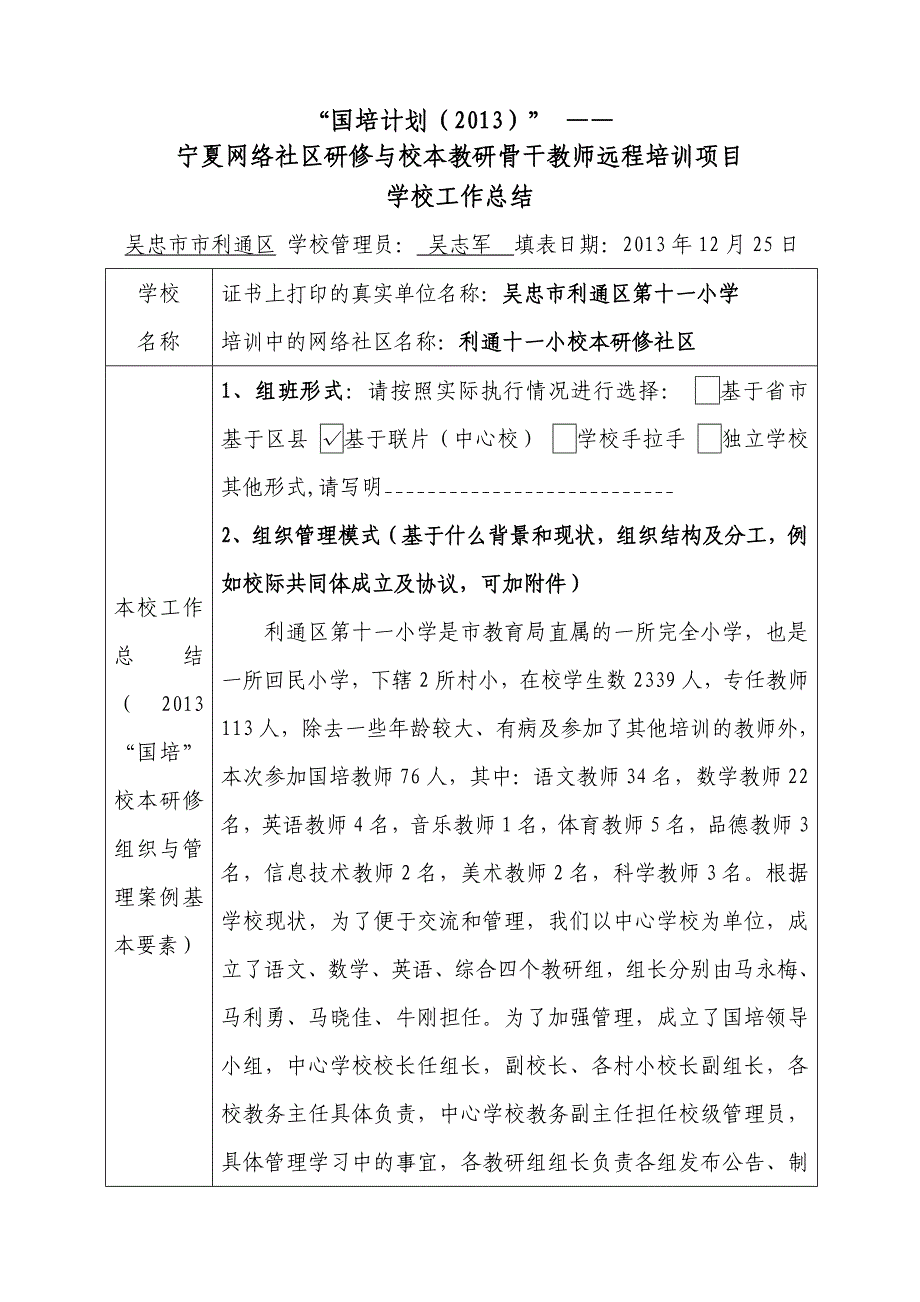 “国培计划（2013）” ——
宁夏网络社区研修与校本教研骨干教师远程培训项目
学校工作总结
吴忠市市利通区 学校管理员： 吴志军 填表日期：2013年12月25日
学校
名称
证书上打印的真实单位名称：吴忠市利通区第十一小学
培训中的网络社区名称：利通十一小校本研修社区
本校工作
总结
（2013
“国培”
校本研修
组织与管
理案例基
本要素）
1、组班形式：请按照实际执行情况进行选择： □基于省市
基于区县 ☑基于联片（中心校） □学校手拉手 □独立学校
其他形式,请写明---------------------------
2、组织管理模式（基于什么背景和现状，组织结构及分工，例
如校际共同体成立及协议，可加附件）
利通区第十一小学是市教育局直属的一所完全小学，也是
一所回民小学，下辖2所村小，在校学生数2339人，专任教师
113人，除去一些年龄较大、有病及参加了其他培训的教师外，
本次参加国培教师76人，其中：语文教师34名，数学教师22
名，英语教师4名，音乐教师1名，体育教师5名，品德教师3
名，信息技术教师2名，美术教师2名，科学教师3名。根据
学校现状，为了便于交流和管理，我们以中心学校为单位，成
立了语文、数学、英语、综合四个教研组，组长分别由马永梅、
马利勇、马晓佳、牛刚担任。为了加强管理，成立了国培领导
小组，中心学校校长任组长，副校长、各村小校长副组长，各
校教务主任具体负责，中心学校教务副主任担任校级管理员，
具体管理学习中的事宜，各教研组组长负责各组发布公告、制